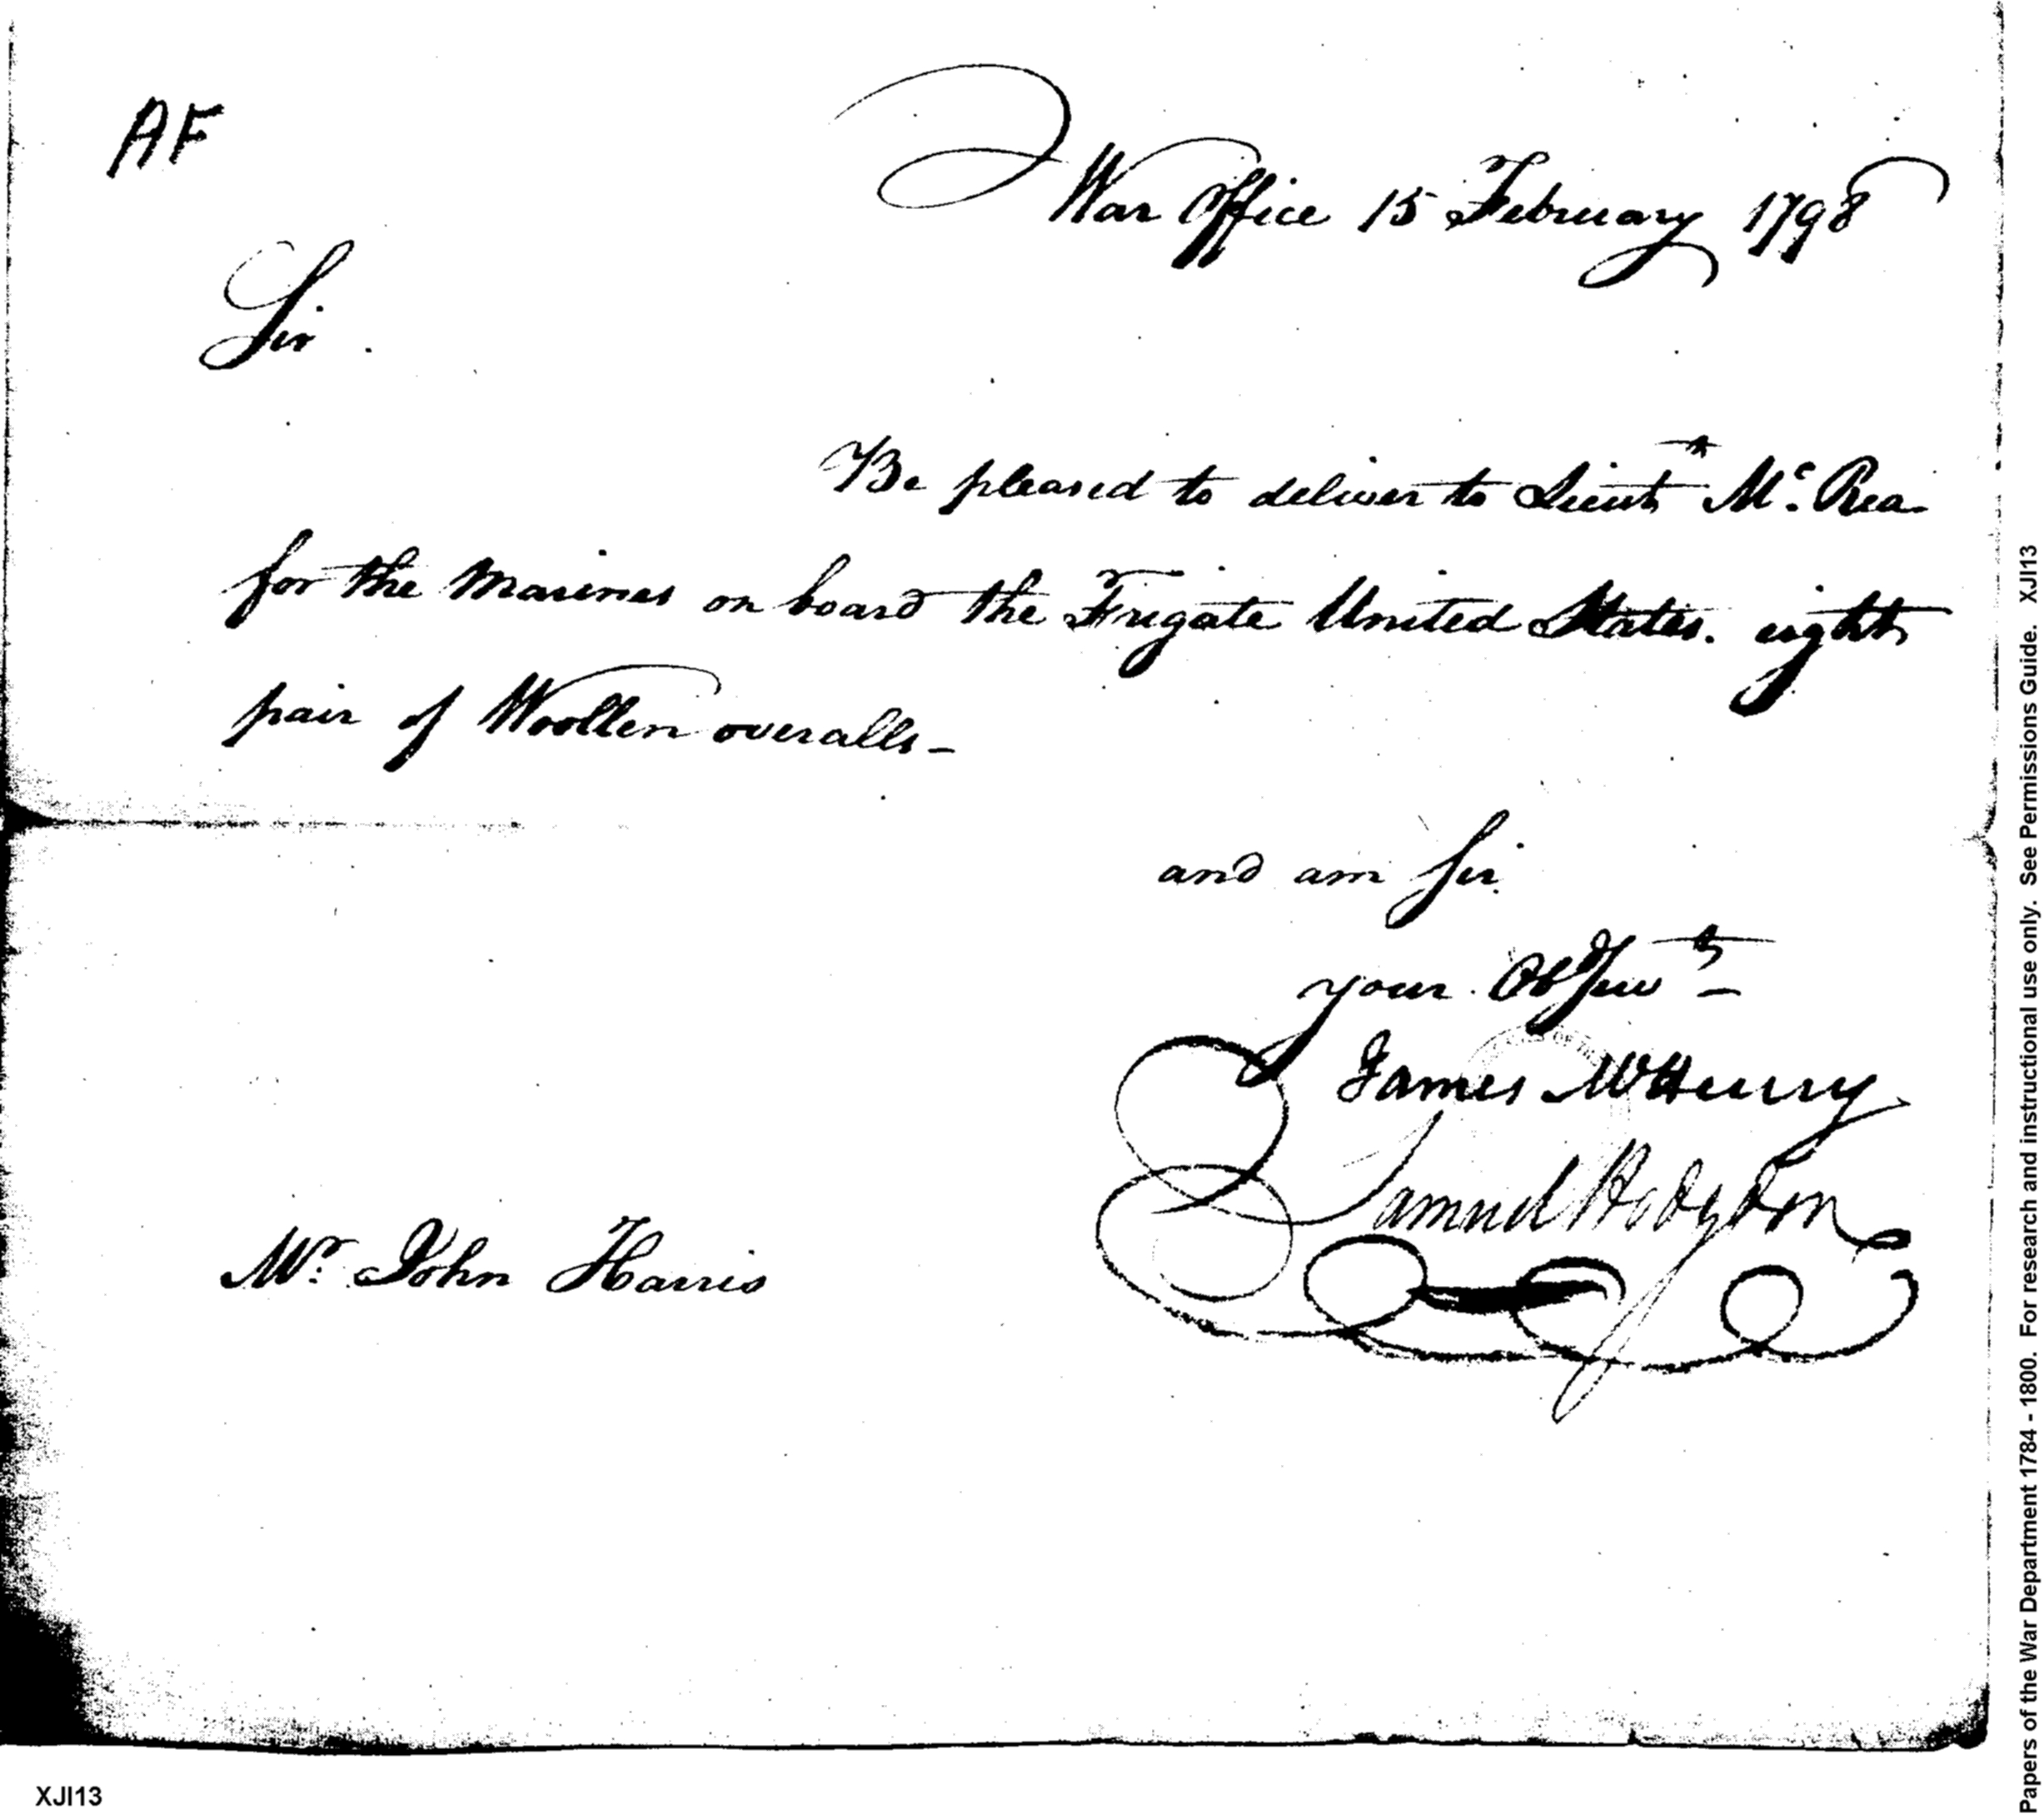 AF
War Office 15 February 1798
Sir.
Be pleased to deliver to Lieut.t Mc. Rea
for the Marines on board the Frigate United States. eight
pair of Woollen overalls–
and am Sir.
your. Ob Serv t
James McHenry
Samuel Hodgdon
Mr. John Harris
XJI13
Papers of the War Department 1784 - 1800. For research and instructional use only. See Permissions Guide. XJI13